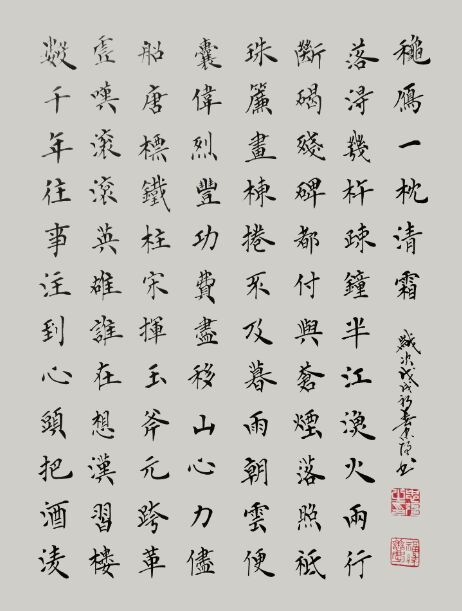 數千年往事注到心頭把酒淩
虛嘆滾滾英雄誰在想漢習樓
船唐標鐵柱宋揮玉斧元跨革
囊偉烈豐功費盡移山心力儘
珠簾畫棟捲不及暮雨朝雲便
斷碣殘碑都付與蒼煙落照祗
落淂幾杵疎鐘半江漁火兩行
穐鴈一枕清霜
歲次戊戌初春 書